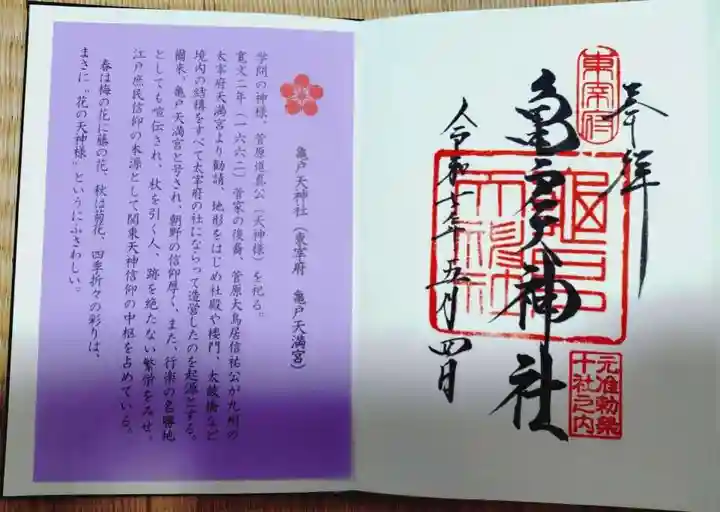 奉拝
東宰府
亀戸天神社
亀戸天神社
元准勅祭
十社之内
令和七年五月四日
亀戸天神社(東宰府 亀戸天満宮)
学問の神様、菅原道真公(天神様)を祀る。
寛文二年(一六六二)菅家の後裔、菅原大鳥居信祐公が九州の
太宰府天満宮より勧請、地形をはじめ社殿や楼門、太鼓橋など
境内の結構をすべて太宰府の社にならって造営したのを起源とする。
爾来、亀戸天満宮と号され、朝野の信仰厚く、また、行楽の名勝地
としても宣伝され、杖を引く人、跡を絶たない繁栄をみせ、
江戸庶民信仰の本源として関東天神信仰の中枢を占めている。
春は梅の花に藤の花、秋は菊花、四季折々の彩りは、
まさに"花の天神様"というにふさわしい。